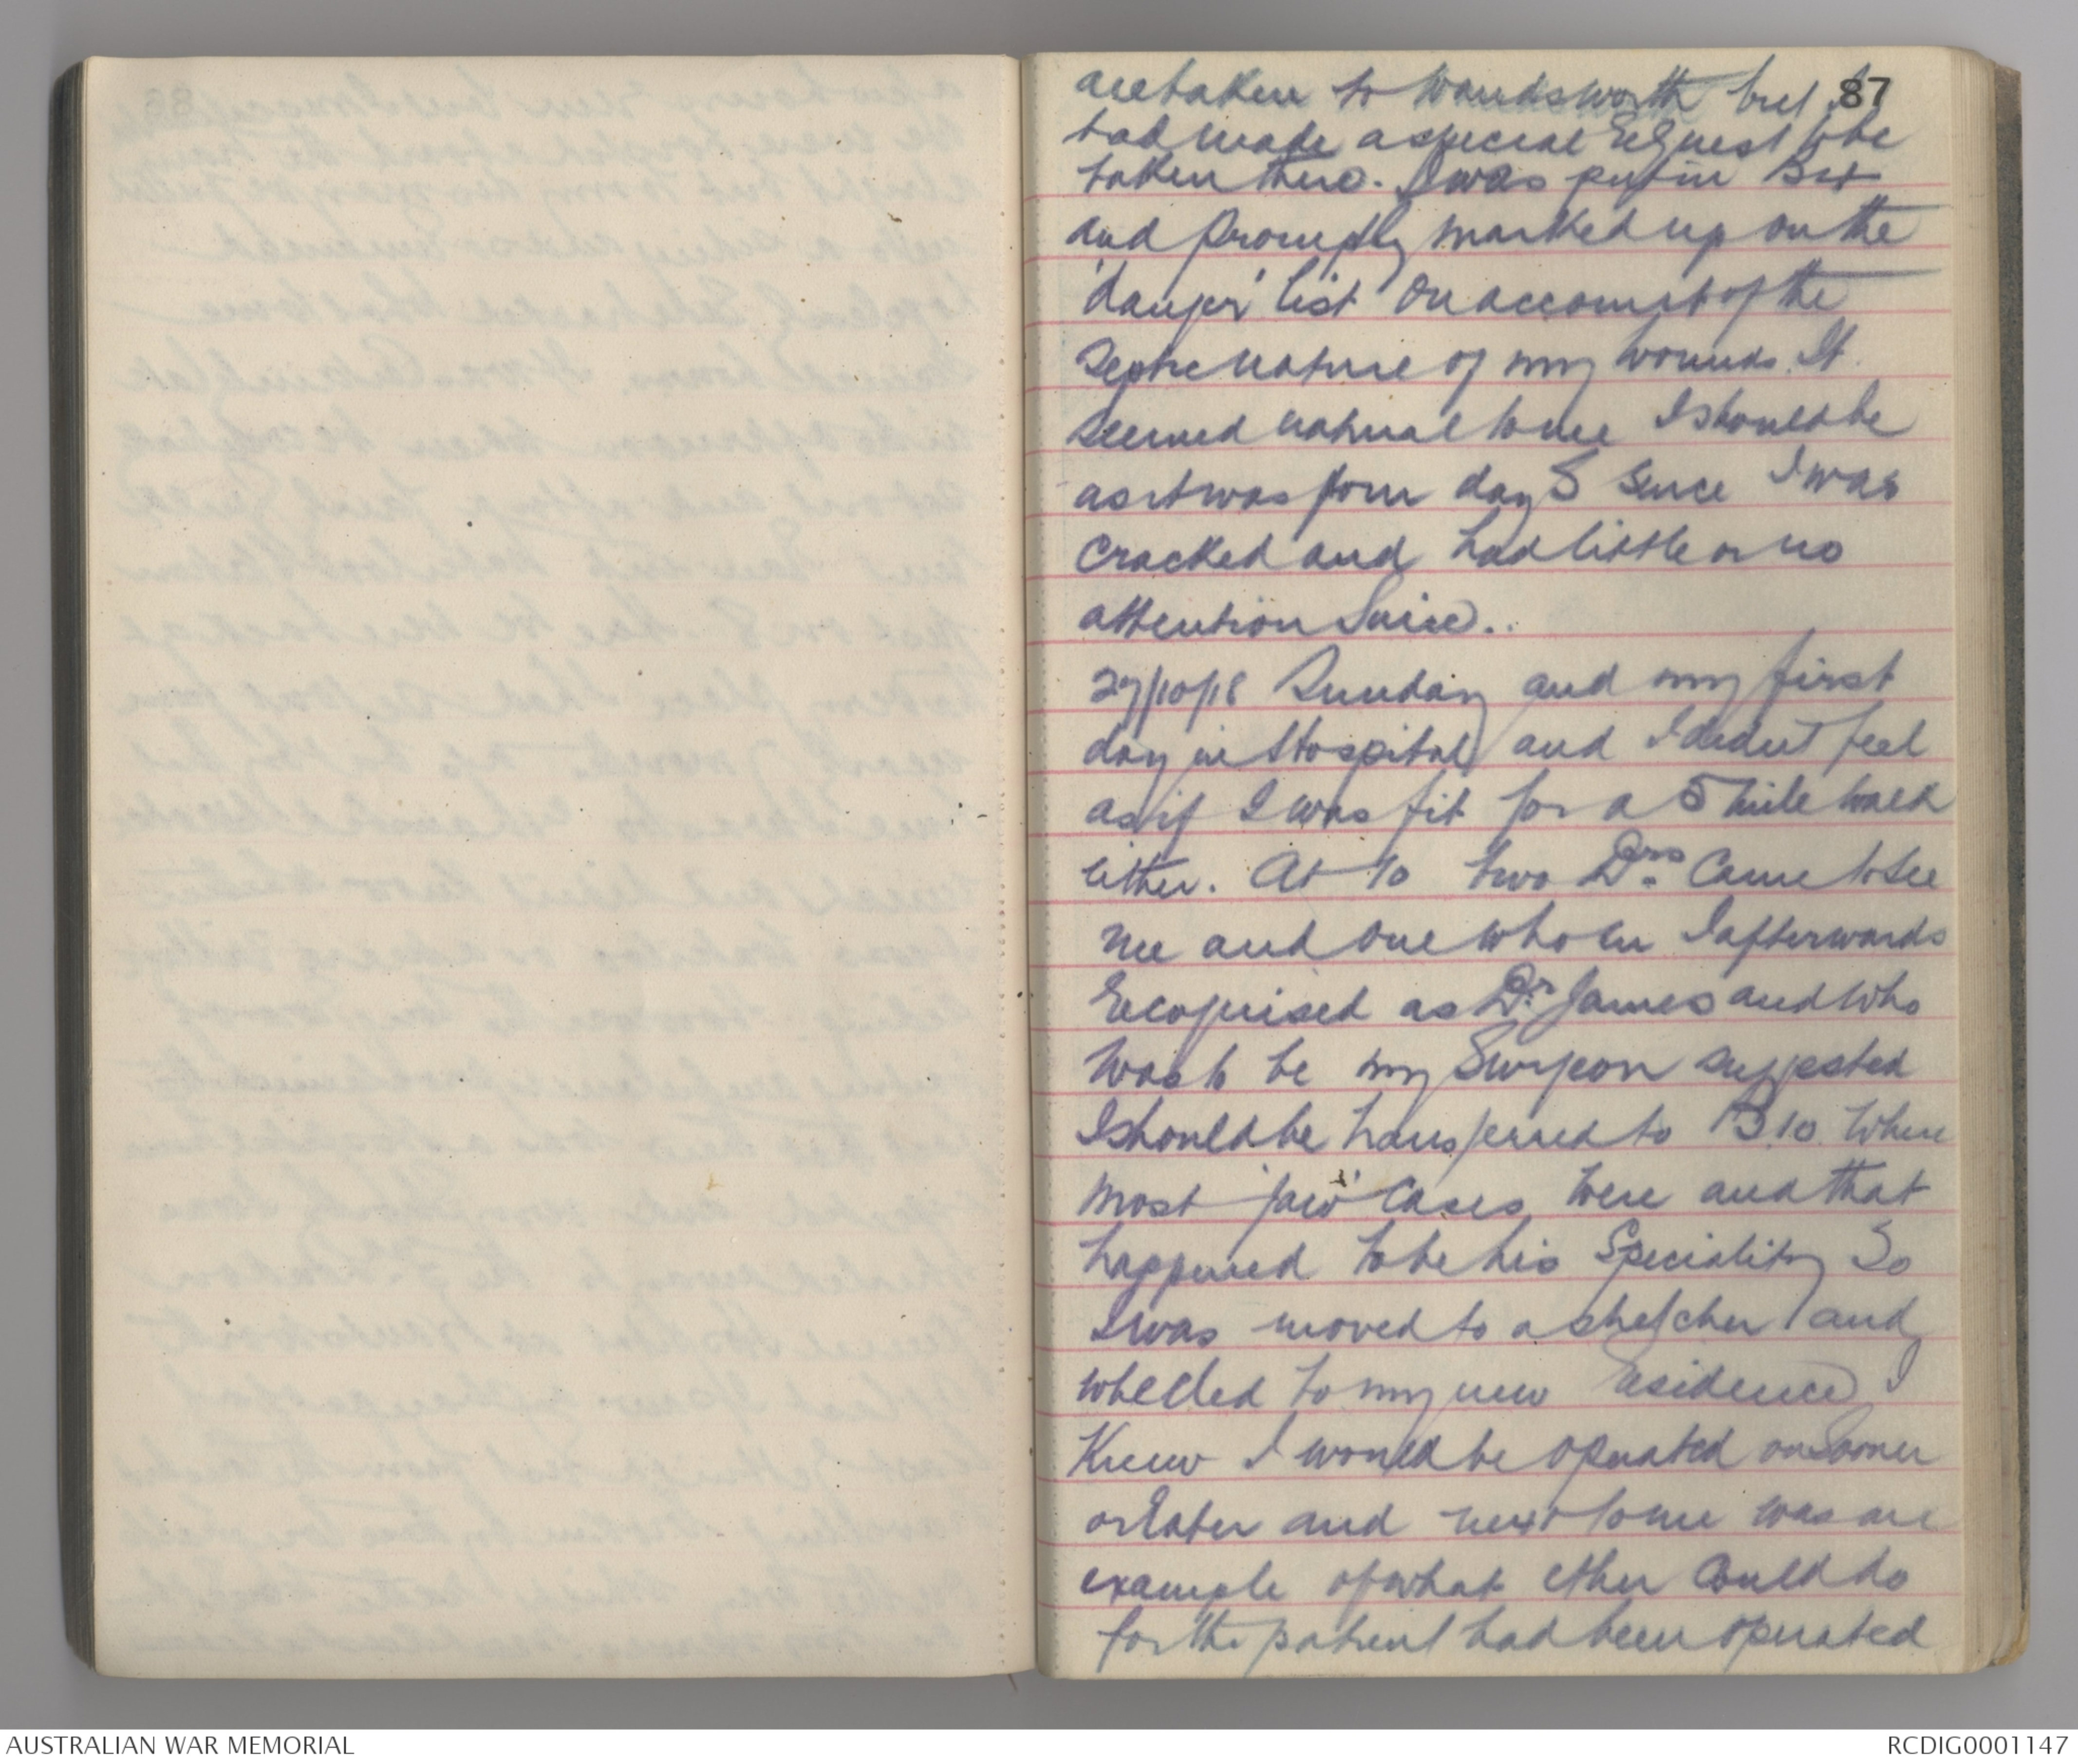 87
are taken to Wandsworth but I
had made a special request to be
taken there. I was put in
and promptly marked up on the
'danger' list on account of the
septic nature of my wounds. It
seemed natural to me I should be
as it was four days since I was
cracked and had little or no
attention since..
27/10/18 Sunday and my first
day in Hospital and I didn't feel
as if I was fit for a 5 mile walk
either. At 10 two Drs came to see
me and one whom I afterwards
recognised as Dr James and who
was to be my Surgeon suggested
I should be transferred to B.10. where
most 'jaw' cases were and that
happened to be his Speciality So
I was moved to a stretcher and
wheeled to my new residence I
knew I would be operated on sooner
or later and next to me was an
example of what ether could do
for the patient had been operated
AUSTRALIAN WAR MEMORIAL
RCDIG0001147